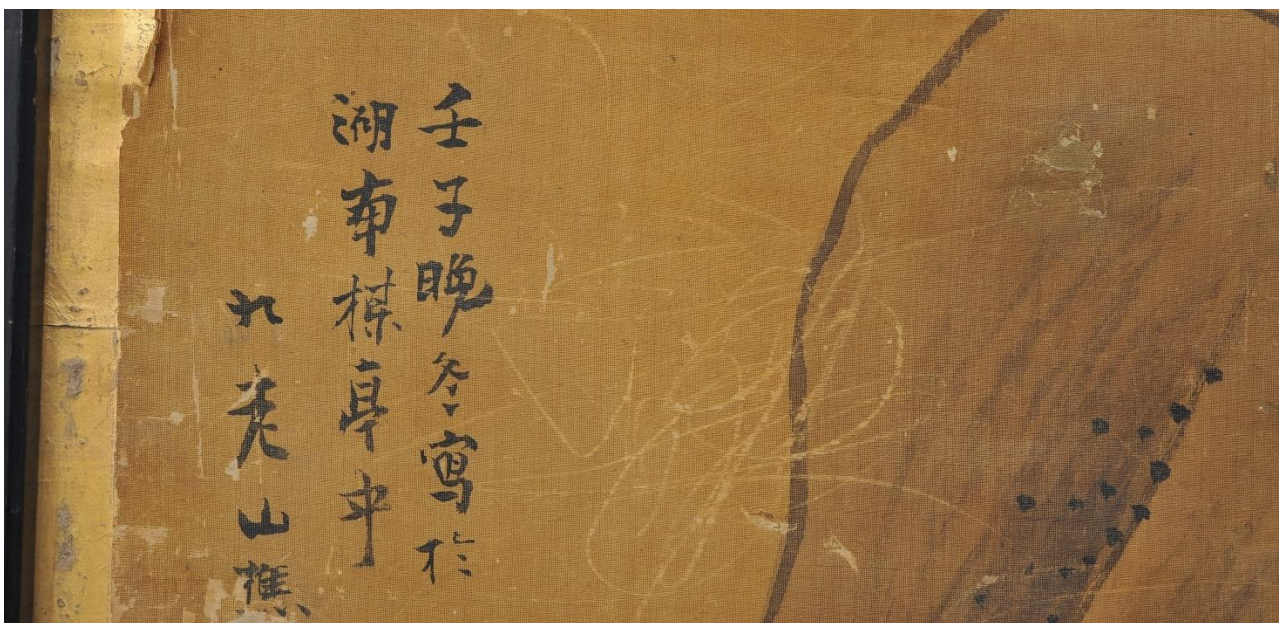 壬子晚冬寫於
湖南楳亭中
九老山樵